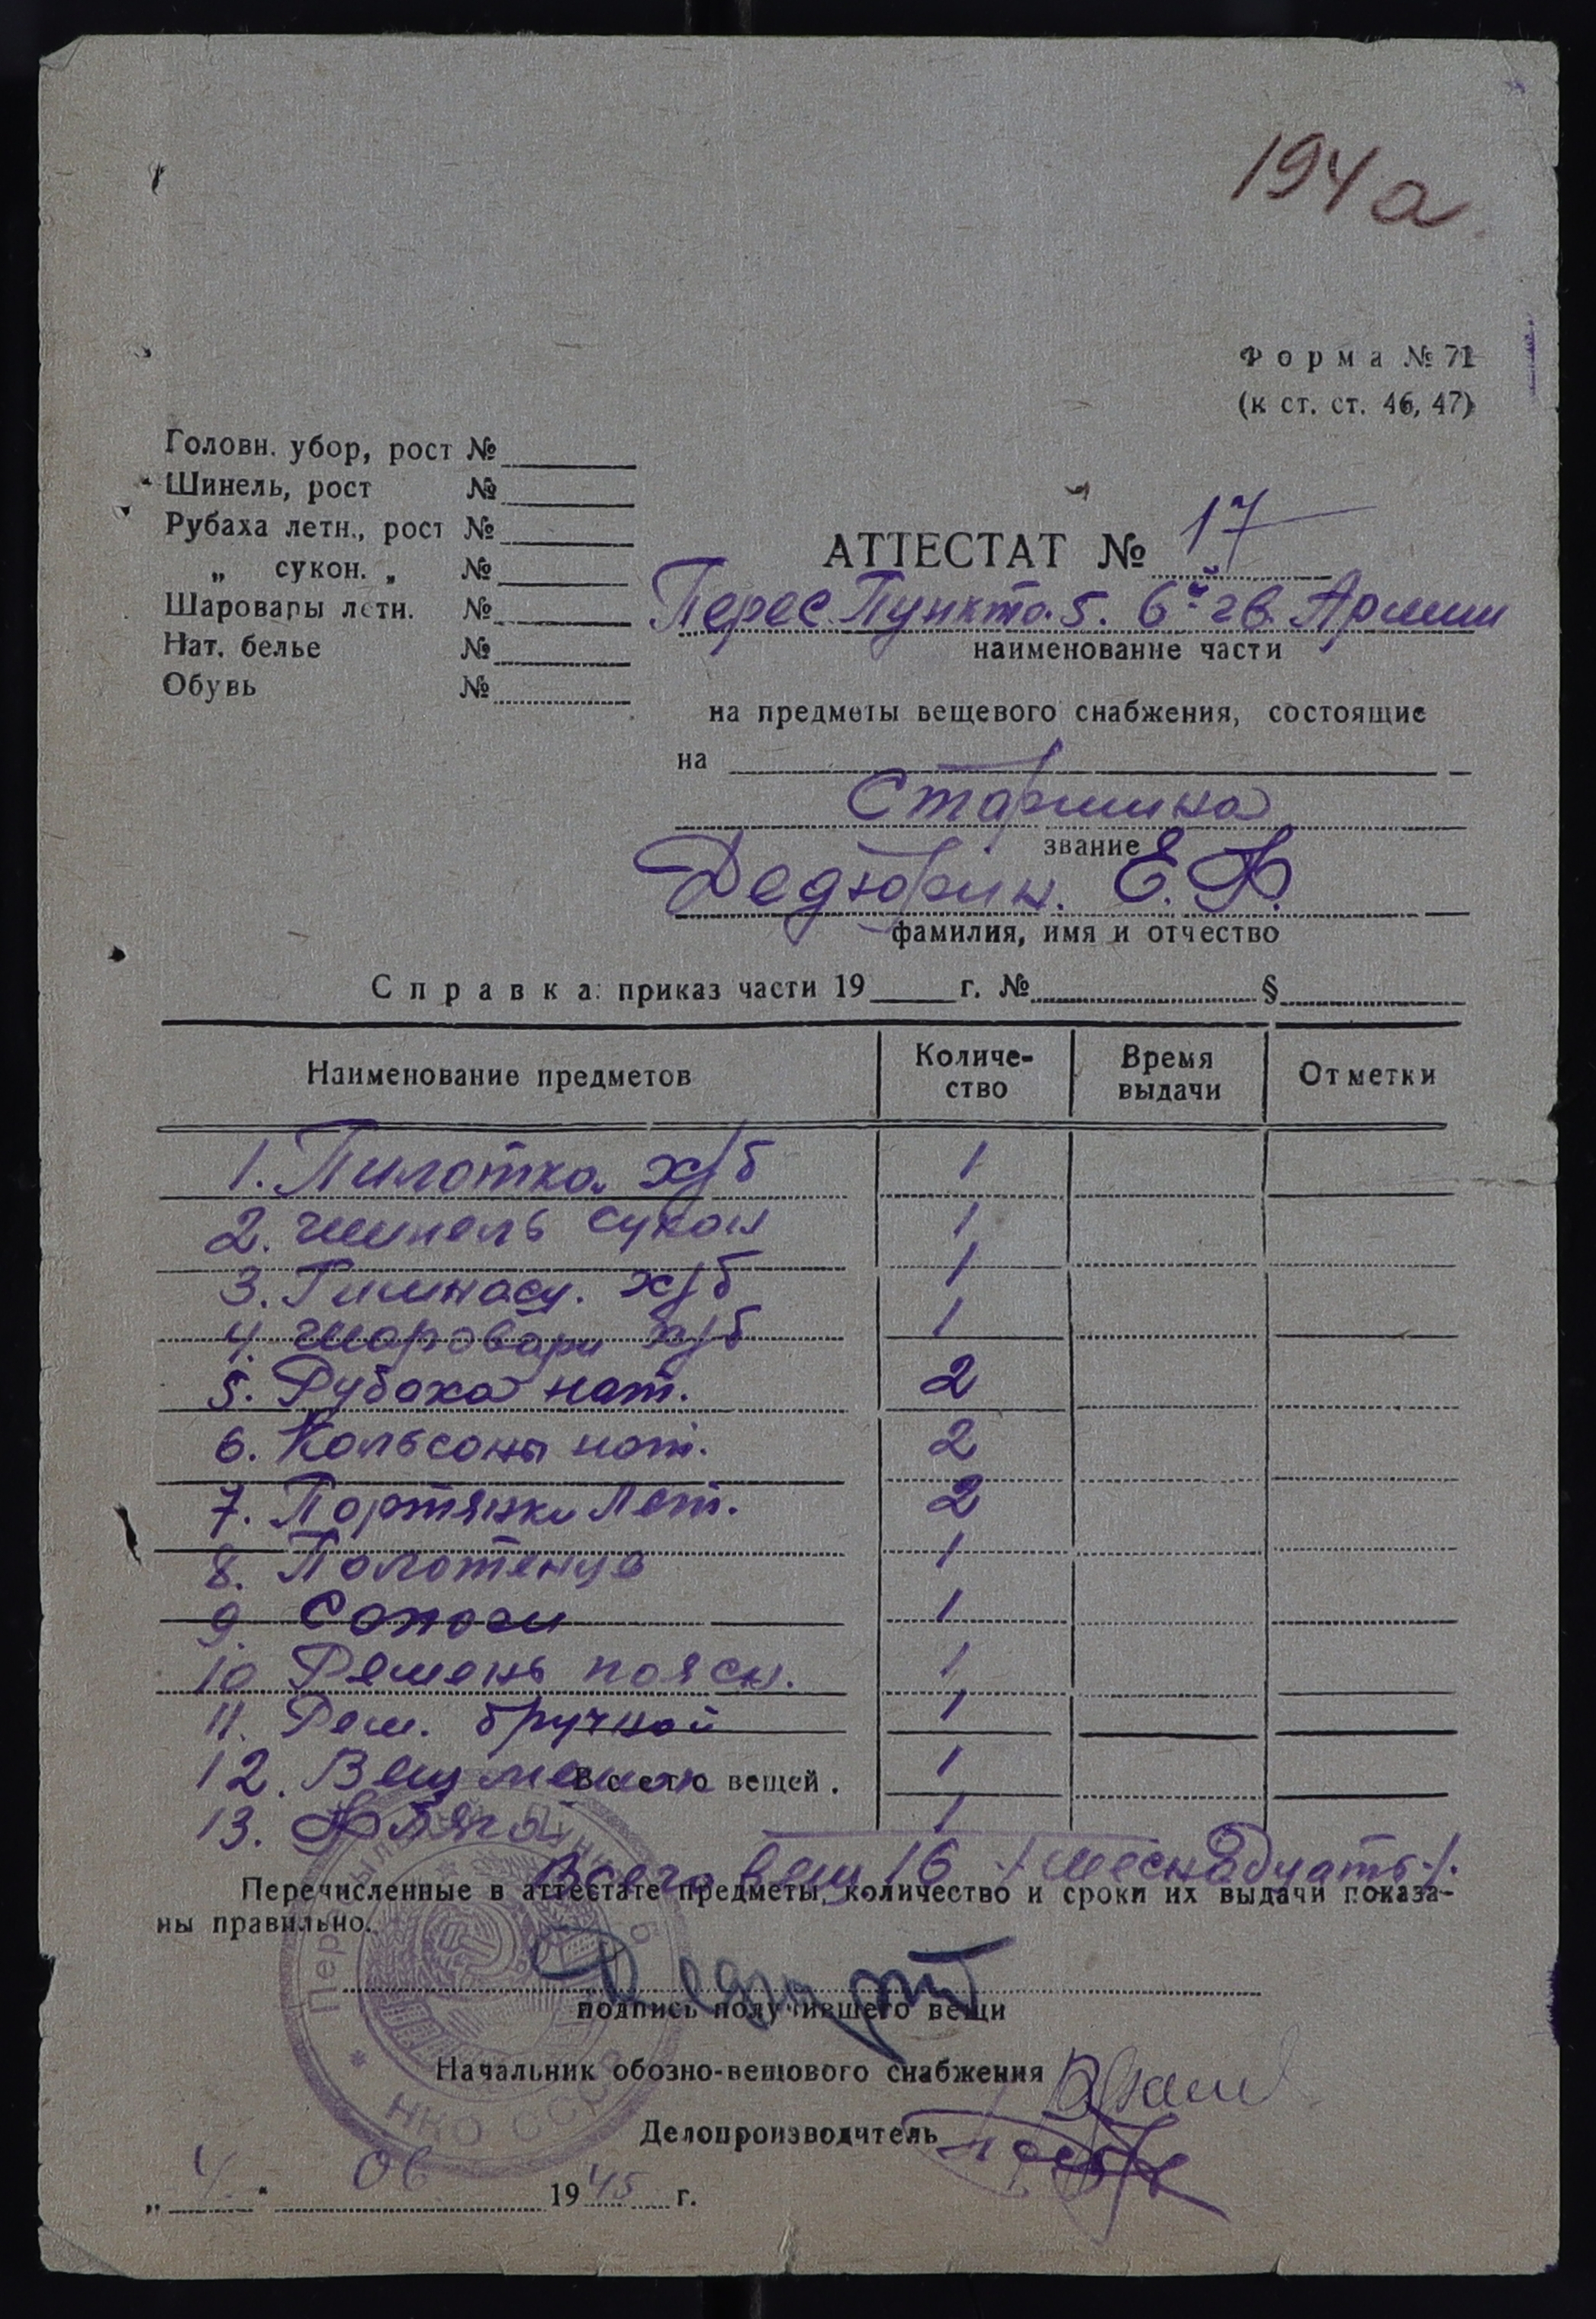 194а
Форма № 71
(к ст. ст. 46, 47)
Головн. убор, рост №
Шинель, рост №
Рубаха летн., рост №
„ сукон. „ №
Шаровары летн. №
Нат. белье №
Обувь №
АТТЕСТАТ № 17
Перес. Пункта. 5. 6й гв. Армии
наименование части
на предметы вещевого снабжения, состоящие
на
Старшина
звание
Дедюрин. Е. Ф.
фамилия, имя и отчество
Справка: приказ части 19 г. № §
Наименование предметов Количе- Время Отметки
ство выдачи
1. Пилотка х/б 1
2. шинель сукон 1
3. Гимнасц. х/б 1
4. шаровари х/б 1
5. Рубаха нат. 2
6. Кальсоны нат. 2
7. Портянки Лет. 2
8. Полотенце 1
9. Сапоги 1
10 Ремень поясн. 1
11. Рем. бручной 1
12. Вещ мешок 1
Всего вещей.
13. Фляга 1
Всего вещ 16 /шеснадцать/.
Перечисленные в аттестате предметы, количество и сроки их выдачи показа-
ны правильно.
подпись получившего вещи
Начальник обозно-вещового снабжения
Делопроизводитель
НКО СССР
„ 4 " 06 1945 г.